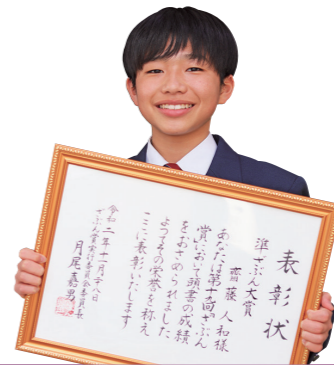 表彰状
準ざぶん大賞
齋藤 人和様
あなたは第十九回ざぶん
賞において頭書の成績
をおさめられました
よってその栄誉を称え
ここに表彰いたします
令和二年十一月二十八日
ざぶん賞実行委員会委員長
月尾嘉男